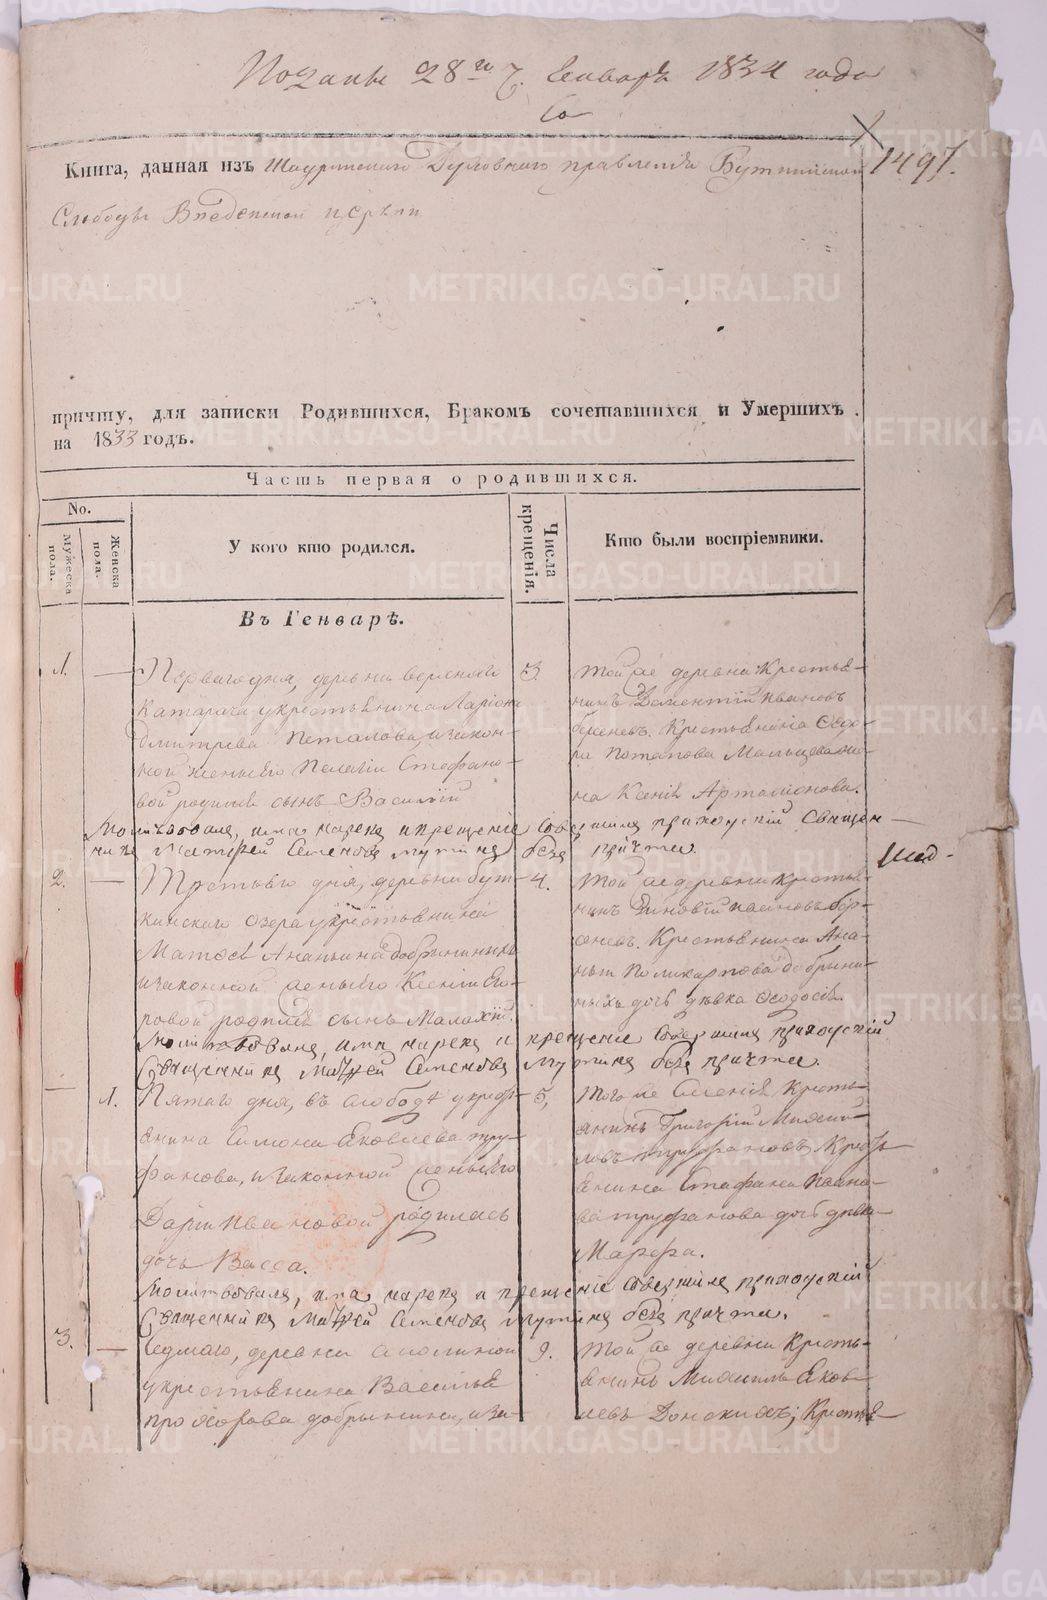 Поданы 28го ч. Генваря 1834 года
1497.
Книга, данная изъ Шадринскаго Духовнаго правленія Буткинской
Слободы Введенской церкви
причту, для записки Родившихся, Бракомъ сочетавшихся и Умершихъ
на 1833 годъ.
Часть первая о родившихся.
No.
Мужеска пола.
Женска пола.
У кого кто родился.
Числа крещенія.
Кто были воспріемники.
Въ Генварѣ.
1. —
Перваго дня, деревни
Катарача у крестьянина Ларіона
Дмитріева Поталова, и закон-
ной жены его Пелагіи Стефано-
вой родился сынъ Василій
3.
Той же деревни Крестья-
нинъ Дементій Ивановъ
Береневъ. Крестьянина Ѳедо-
ра Потапова Мальцева же-
на Ксенія Артамонова.
Молитвовалъ, имя нарекъ и крещеніе совершилъ приходскій Священ-
никъ Матѳей Семеновъ Мутинъ безъ причта.
2. —
Третьяго дня, деревни Бут-
кинскаго Озера у крестьянина
Матвея Ананьина Добрынина
и законной жены его Ксеніи Его-
ровой родился сынъ Малахій.
4.
Той же деревни Крестья-
нинъ Зиновій Ивановъ Бер-
еневъ. Крестьянина Ана-
ньи Поликарпова Добрыни-
ныхъ дочь дѣвка Ѳедосія.
Молитвовалъ, имя нарекъ и крещеніе совершилъ приходскій
Священникъ Матѳей Семеновъ Мутинъ безъ причта.
— 1.
Пятаго дня, въ слободѣ у крест-
янина Симона Яковлева Тру-
фанова, и законной жены его
Дарьи Ивановой родилась
дочь Васса.
5,
Того же Селенія Кресть-
янинъ Григорій Михаи-
ловъ Труфановъ, Кресть-
янина Стефана Ивано-
ва Труфанова дочь дѣвка
Марфа.
Молитвовалъ, имя нарекъ и крещеніе совершилъ приходскій
Священникъ Матѳей Семеновъ Мутинъ безъ причта.
3. —
Седмаго, деревни Смолиной
у крестьянина Василья
Прохорова Добрынина, и за-
9.
Той же деревни Кресть-
янинъ Михаилъ Яков-
левъ Донскихъ; Крестья-